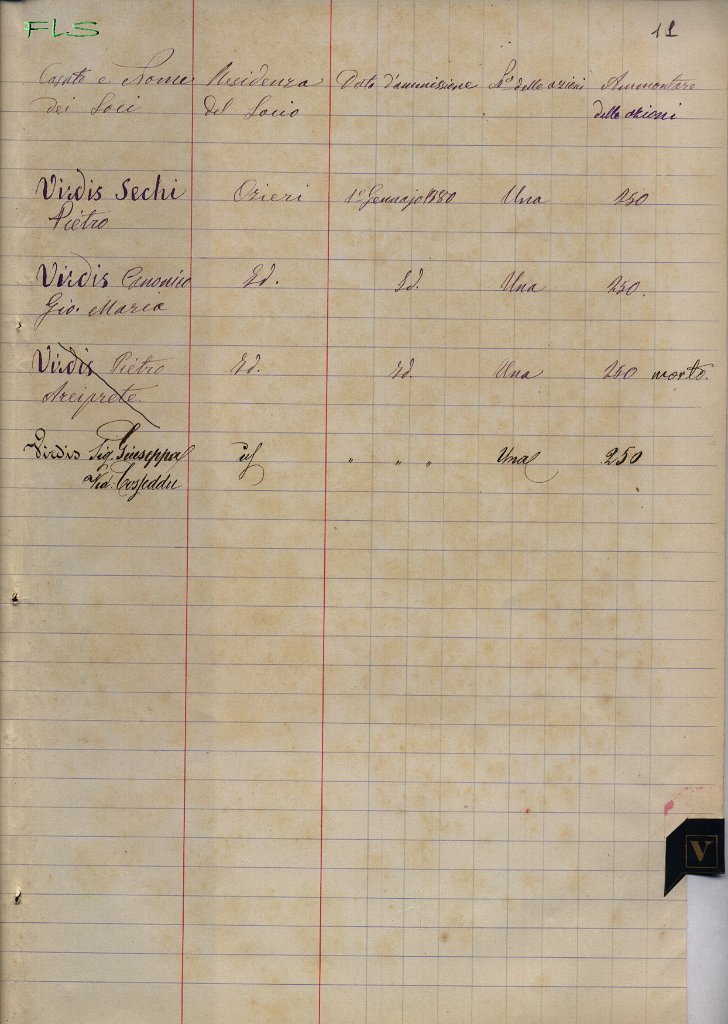 FLS
11
Casate e Nome Residenza Data d'ammissione N.ro delle azioni Ammontare
dei Soci del Socio delle azioni
Virdis Sechi Ozieri 1° Gennajo 1880 Una 250
Pietro
Virdis Canonico Id. Id. Una 250.
Gio. Maria
Virdis Pietro Id. Id. Una 250 morto.
Arciprete.
Virdis Sig. Giuseppa id " " " Una 250
Vid. Cosseddu
V